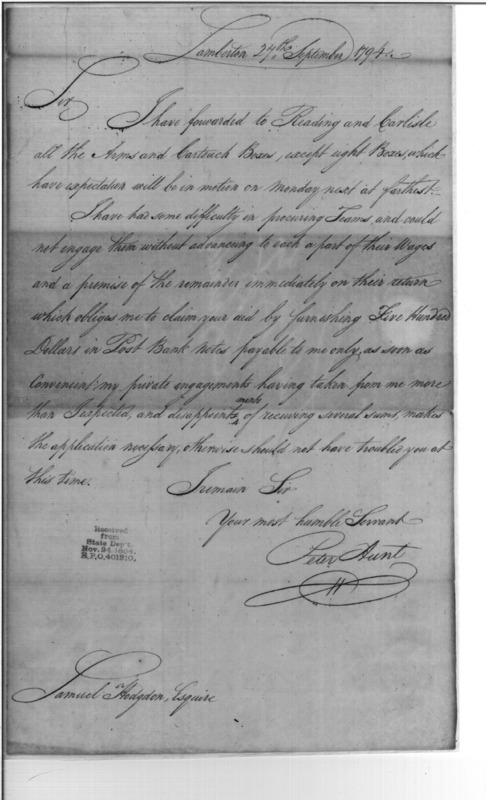 Lamberton 27th September 1794.
Sir
I have forwarded to Reading and Carlisle
all the Arms and Cartouch Boxes, except eight Boxes, which
have expectation will be in motion on Monday next at farthest.
I have had some difficulty in procuring Teams, and could
not engage them without advancing to each a part of their Wages
and a promise of the remainder immediately on their return
which obliges me to claim your aid by furnishing Five Hundred
Dollars in Post Bank Notes payable to me only, as soon as
Convenient; my private engagements having taken from me more
than I expected, and disappointments of receiving several sums, makes
the application necessary, otherwise should not have troubled you at
this time.
I remain Sir
Your most humble Servant
Peter Hunt
Received
from
State Dep't.
Nov. 24, 1894.
R.P.O. 401210.
Samuel Hodgdon, Esquire